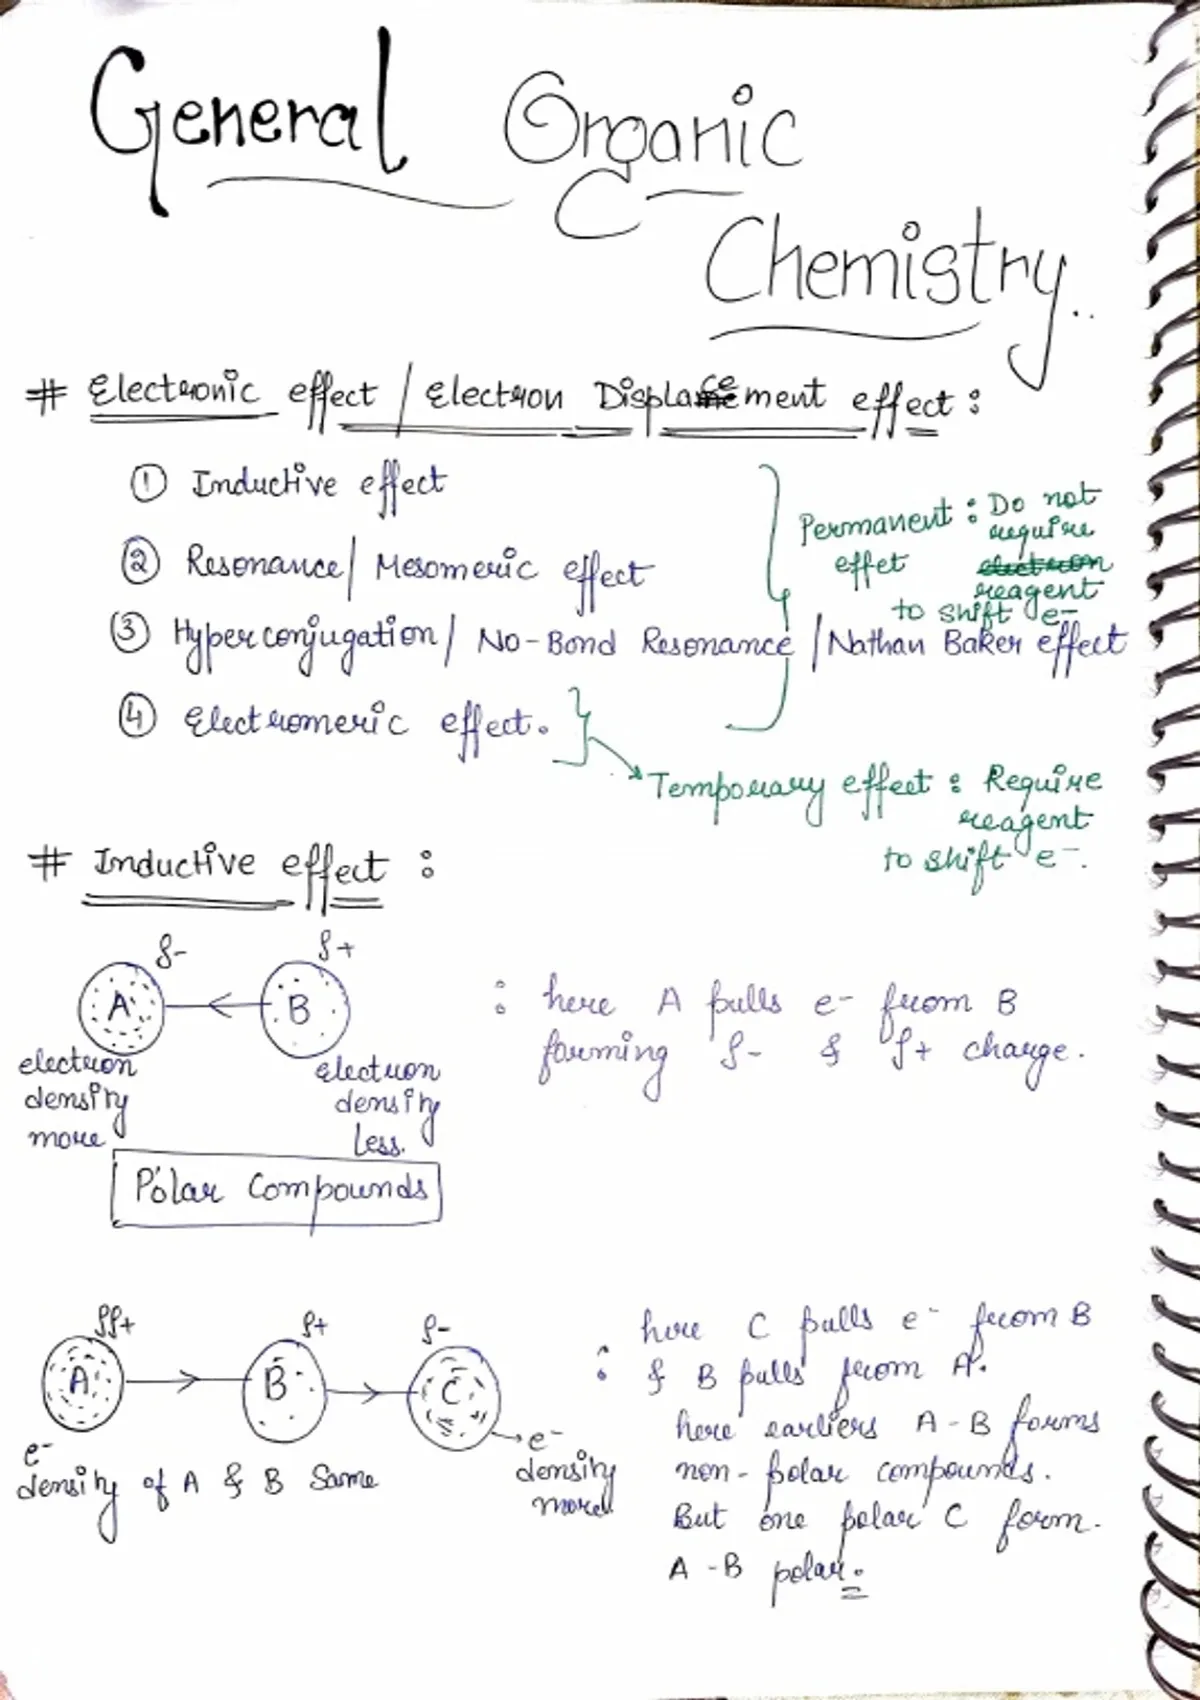 General Organic
Chemistry..
# Electronic effect / Electron Displacement effect :
① Inductive effect
Permanent : Do not
effet require
reagent
to shift e-
② Resonance/ Mesomeric effect
③ Hyperconjugation/ No-Bond Resonance /Nathan Baker effect
④ Electromeric effect.
Temporary effect : Require
reagent
to shift e-.
# Inductive effect :
δ- δ+
A B
: here A pulls e- from B
forming δ- & δ+ charge.
electron
density
more
electron
density
less.
Polar Compounds
δδ+ δ+ δ-
A B C
e-
density of A & B Same
e-
density
more
: here C pulls e- from B
& B pulls from A.
here earliers A-B forms
non-polar compounds.
But one polar C form.
A-B polar.